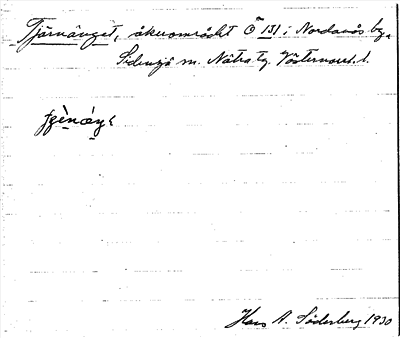 Tjärnänget, åkerområdet Ö 131 i Nordanås by,
Sidensjö sn. Nätra tg. Västernorrl. l.
Hans A. Söderberg 1930